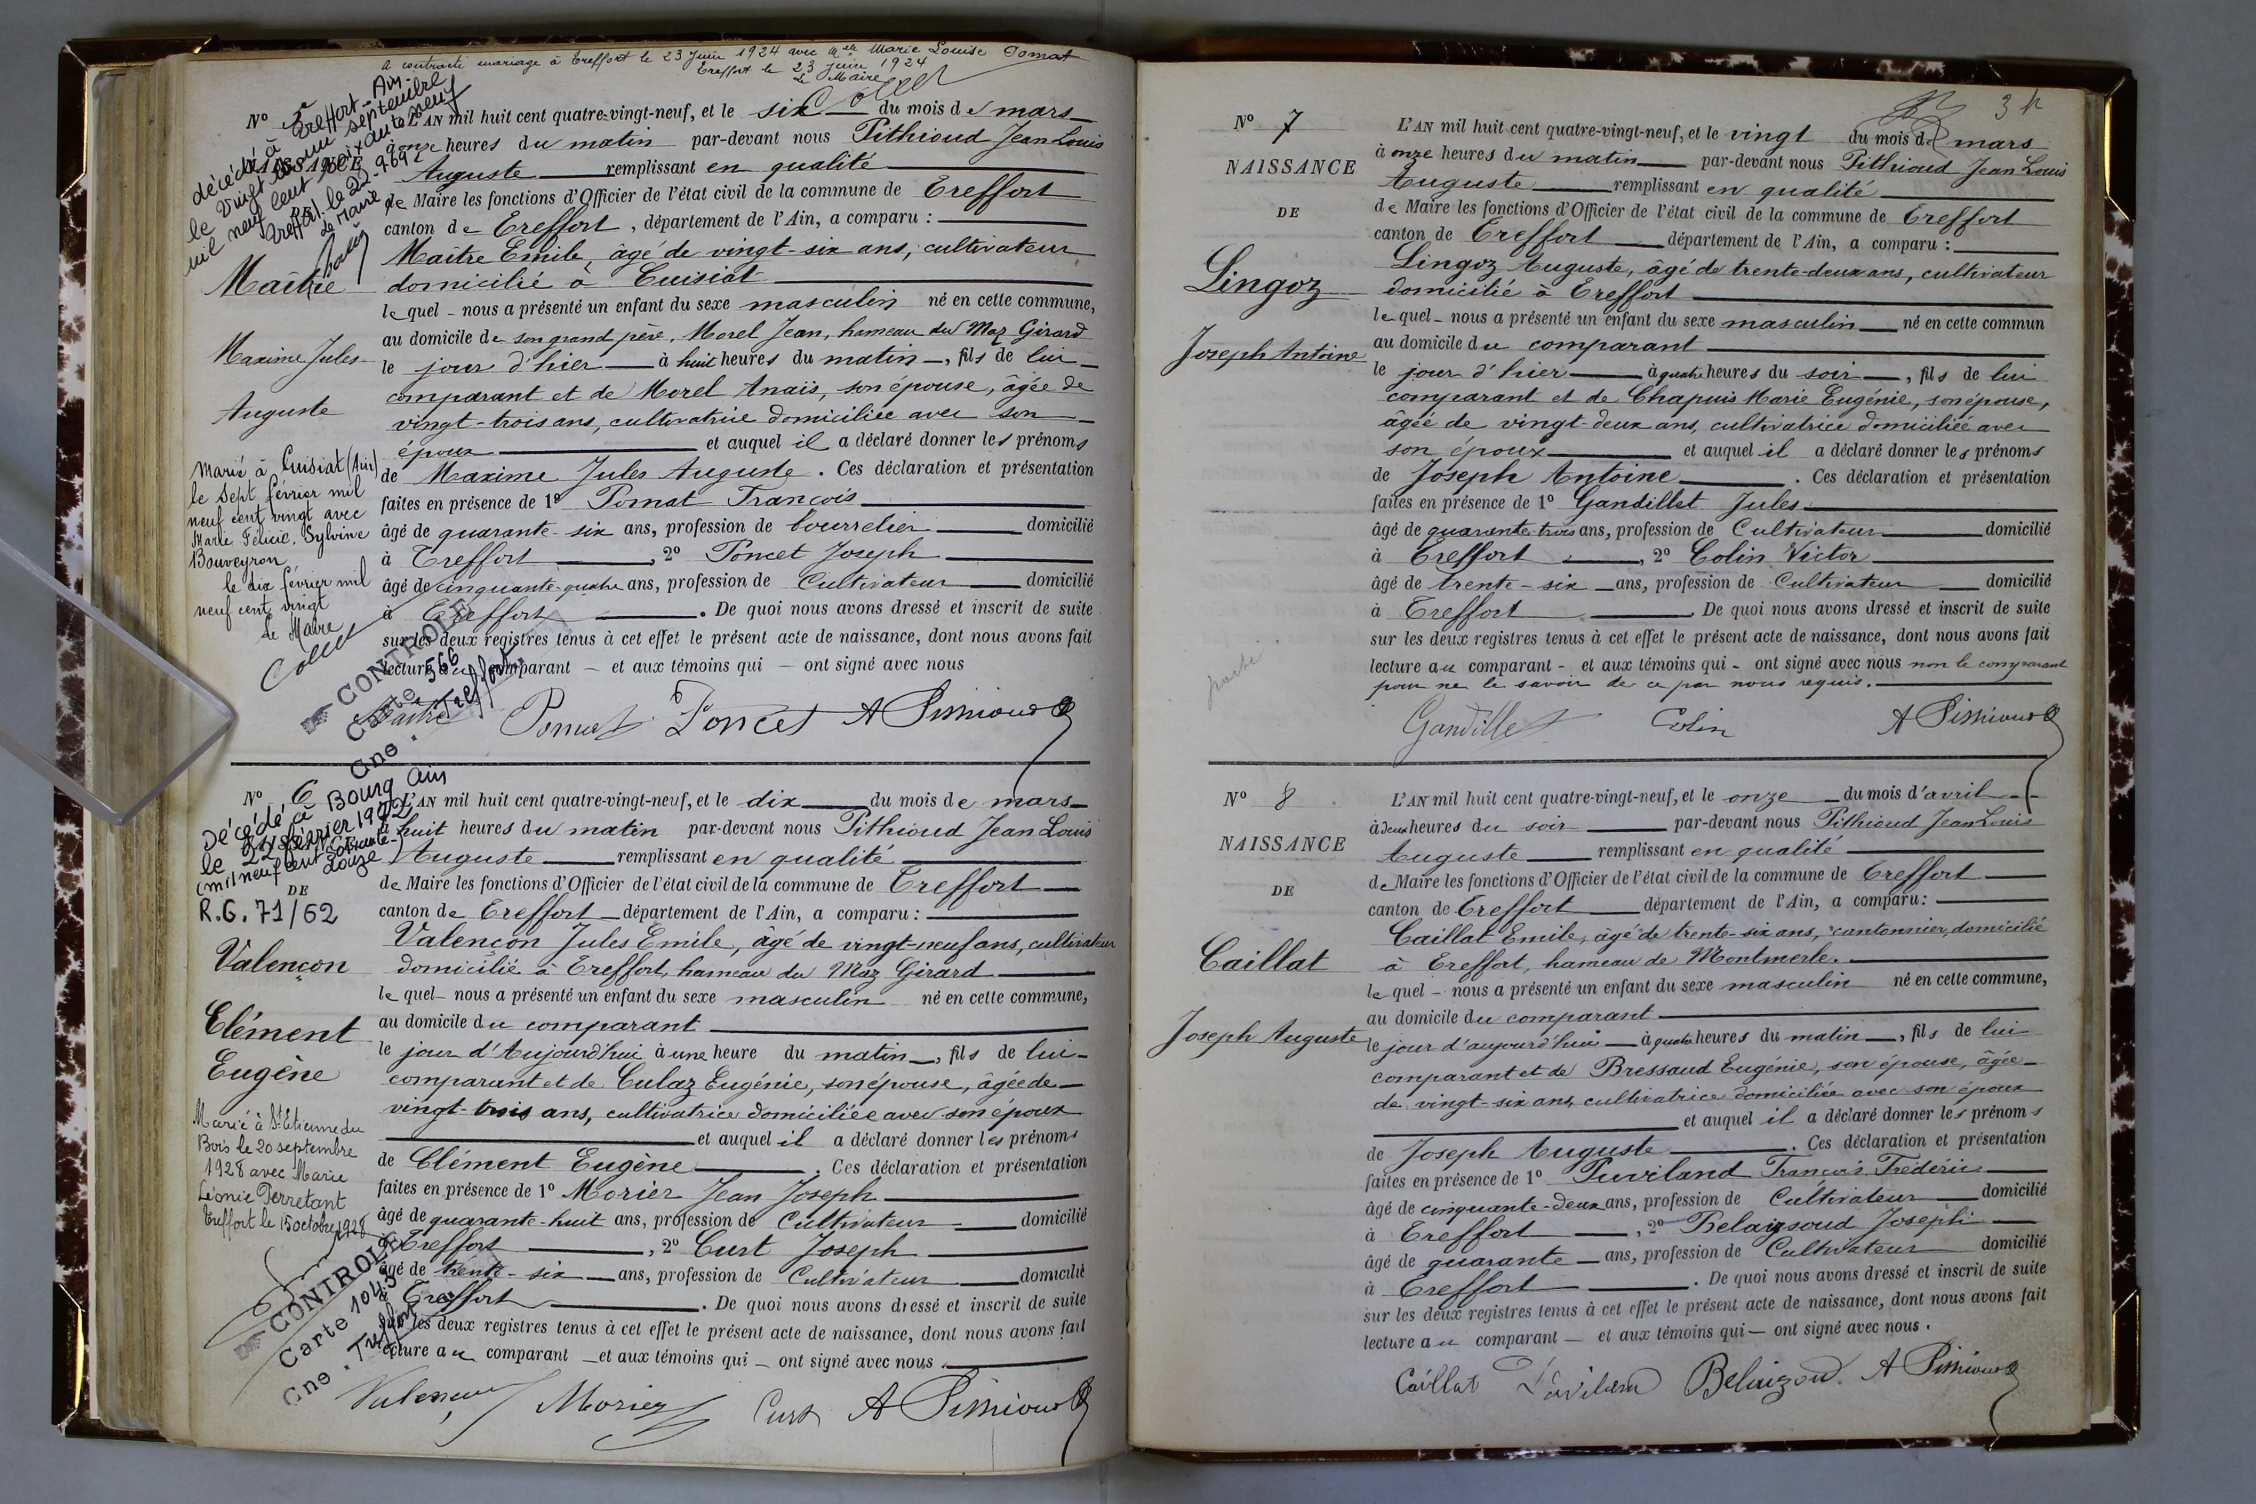 A contracté mariage à Treffort le 23 Juin 1924 avec Mlle Marie Louise Pomat
Treffort le 23 Juin 1924
Le Maire
Nº 5
NAISSANCE
DE
décédé à Treffort - Ain -
le vingt et un septembre
mil neuf cent soixante neuf
Treffort, le 22-9-69
Le Maire
Maître
Maxime Jules
Auguste
Marié à Cuisiat (Ain)
le sept février mil
neuf cent vingt avec
Marie Félicie Sylvine
Bouveyron
le dix février mil
neuf cent vingt
Le Maire
L'AN mil huit cent quatre-vingt-neuf, et le six du mois de mars
à onze heures du matin par-devant nous Pithioud Jean Louis
Auguste remplissant en qualité
de Maire les fonctions d'Officier de l'état civil de la commune de Treffort
canton de Treffort, département de l'Ain, a comparu :
Maître Emile, âgé de vingt-six ans, cultivateur
domicilié à Cuisiat
lequel nous a présenté un enfant du sexe masculin né en cette commune,
au domicile de son grand père, Morel Jean, hameau du Maz Girard
le jour d'hier à huit heures du matin, fils de lui
comparant et de Morel Anaïs, son épouse, âgée de
vingt-trois ans, cultivatrice domiciliée avec son
époux et auquel il a déclaré donner les prénoms
de Maxime Jules Auguste. Ces déclaration et présentation
faites en présence de 1º Pomat François
âgé de quarante-six ans, profession de bourrelier domicilié
à Treffort, 2º Poncet Joseph
âgé de cinquante-quatre ans, profession de Cultivateur domicilié
à Treffort. De quoi nous avons dressé et inscrit de suite
sur les deux registres tenus à cet effet le présent acte de naissance, dont nous avons fait
lecture au comparant — et aux témoins qui — ont signé avec nous
CONTROLE
Carte 566
Cne. Treffort
Maître Pomat Poncet A Pithioud
Nº 6
NAISSANCE
DE
Décédé à Bourg Ain
le 22 Février 1972
(mil neuf cent soixante-
douze)
R.G. 71/62
Valençon
Clément
Eugène
Marié à St Etienne du
Bois le 20 septembre
1928 avec Marie
Léonie Perretant
Treffort le 15 octobre 1928
L'AN mil huit cent quatre-vingt-neuf, et le dix du mois de mars
à huit heures du matin par-devant nous Pithioud Jean Louis
Auguste remplissant en qualité
de Maire les fonctions d'Officier de l'état civil de la commune de Treffort
canton de Treffort département de l'Ain, a comparu :
Valençon Jules Emile, âgé de vingt-neuf ans, cultivateur
domicilié à Treffort, hameau du Maz Girard
lequel nous a présenté un enfant du sexe masculin né en cette commune,
au domicile du comparant
le jour d'Aujourd'hui à une heure du matin, fils de lui
comparant et de Culaz Eugénie, son épouse, âgée de
vingt-trois ans, cultivatrice domiciliée avec son époux
et auquel il a déclaré donner les prénoms
de Clément Eugène. Ces déclaration et présentation
faites en présence de 1º Morier Jean Joseph
âgé de quarante-huit ans, profession de Cultivateur domicilié
à Treffort, 2º Curt Joseph
âgé de trente-six ans, profession de Cultivateur domicilié
à Treffort. De quoi nous avons dressé et inscrit de suite
sur les deux registres tenus à cet effet le présent acte de naissance, dont nous avons fait
lecture au comparant — et aux témoins qui — ont signé avec nous.
CONTROLE
Carte 1043
Cne. Treffort
Valençon Morier Curt A Pithioud
Nº 7
NAISSANCE
DE
Lingoz
Joseph Antoine
L'AN mil huit cent quatre-vingt-neuf, et le vingt du mois de mars
à onze heures du matin par-devant nous Pithioud Jean Louis
Auguste remplissant en qualité
de Maire les fonctions d'Officier de l'état civil de la commune de Treffort
canton de Treffort département de l'Ain, a comparu :
Lingoz Auguste, âgé de trente-deux ans, cultivateur
domicilié à Treffort
lequel nous a présenté un enfant du sexe masculin né en cette commun
au domicile du comparant
le jour d'hier à quatre heures du soir, fils de lui
comparant et de Chapuis Marie Eugénie, son épouse,
âgée de vingt-deux ans, cultivatrice domiciliée avec
son époux et auquel il a déclaré donner les prénoms
de Joseph Antoine. Ces déclaration et présentation
faites en présence de 1º Gandillet Jules
âgé de quarante-trois ans, profession de Cultivateur domicilié
à Treffort, 2º Colin Victor
âgé de trente-six ans, profession de Cultivateur domicilié
à Treffort. De quoi nous avons dressé et inscrit de suite
sur les deux registres tenus à cet effet le présent acte de naissance, dont nous avons fait
lecture au comparant - et aux témoins qui - ont signé avec nous non le comparant
pour ne le savoir de ce par nous requis.
Gandillet Colin A Pithioud
Nº 8
NAISSANCE
DE
Caillat
Joseph Auguste
L'AN mil huit cent quatre-vingt-neuf, et le onze du mois d'avril
à deux heures du soir par-devant nous Pithioud Jean Louis
Auguste remplissant en qualité
de Maire les fonctions d'Officier de l'état civil de la commune de Treffort
canton de Treffort département de l'Ain, a comparu :
Caillat Emile, âgé de trente-six ans, cantonnier, domicilié
à Treffort, hameau de Montmerle.
lequel - nous a présenté un enfant du sexe masculin né en cette commune,
au domicile du comparant
le jour d'aujourd'hui à quatre heures du matin, fils de lui
comparant et de Bressaud Eugénie, son épouse, âgée
de vingt-six ans, cultivatrice domiciliée avec son époux
et auquel il a déclaré donner les prénoms
de Joseph Auguste. Ces déclaration et présentation
faites en présence de 1º Puviland François Frédéric
âgé de cinquante-deux ans, profession de Cultivateur domicilié
à Treffort, 2º Belaizoud Joseph
âgé de quarante ans, profession de Cultivateur domicilié
à Treffort. De quoi nous avons dressé et inscrit de suite
sur les deux registres tenus à cet effet le présent acte de naissance, dont nous avons fait
lecture au comparant — et aux témoins qui — ont signé avec nous.
Caillat Puviland Belaizoud A Pithioud